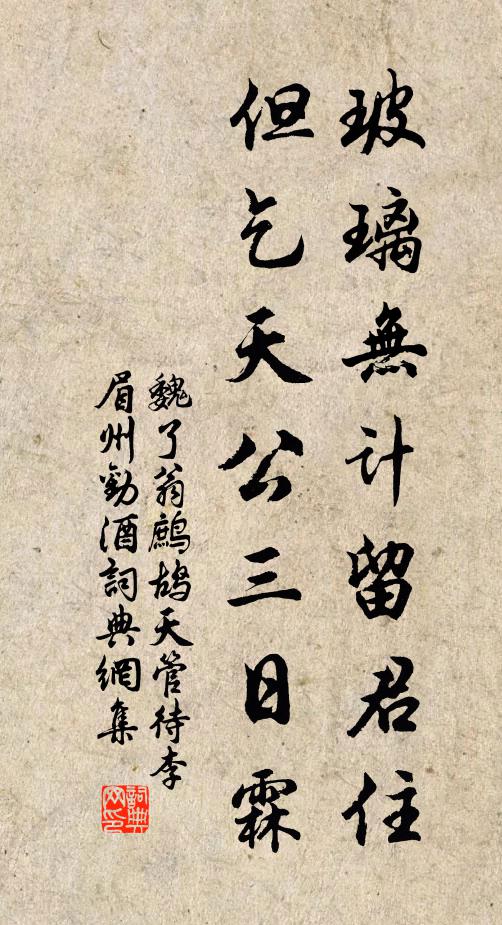 玻璃無计留君住
但乞天公三日霖
魏了翁鷓鴣天管待李
眉州勸酒詞典網集
詞典
网印